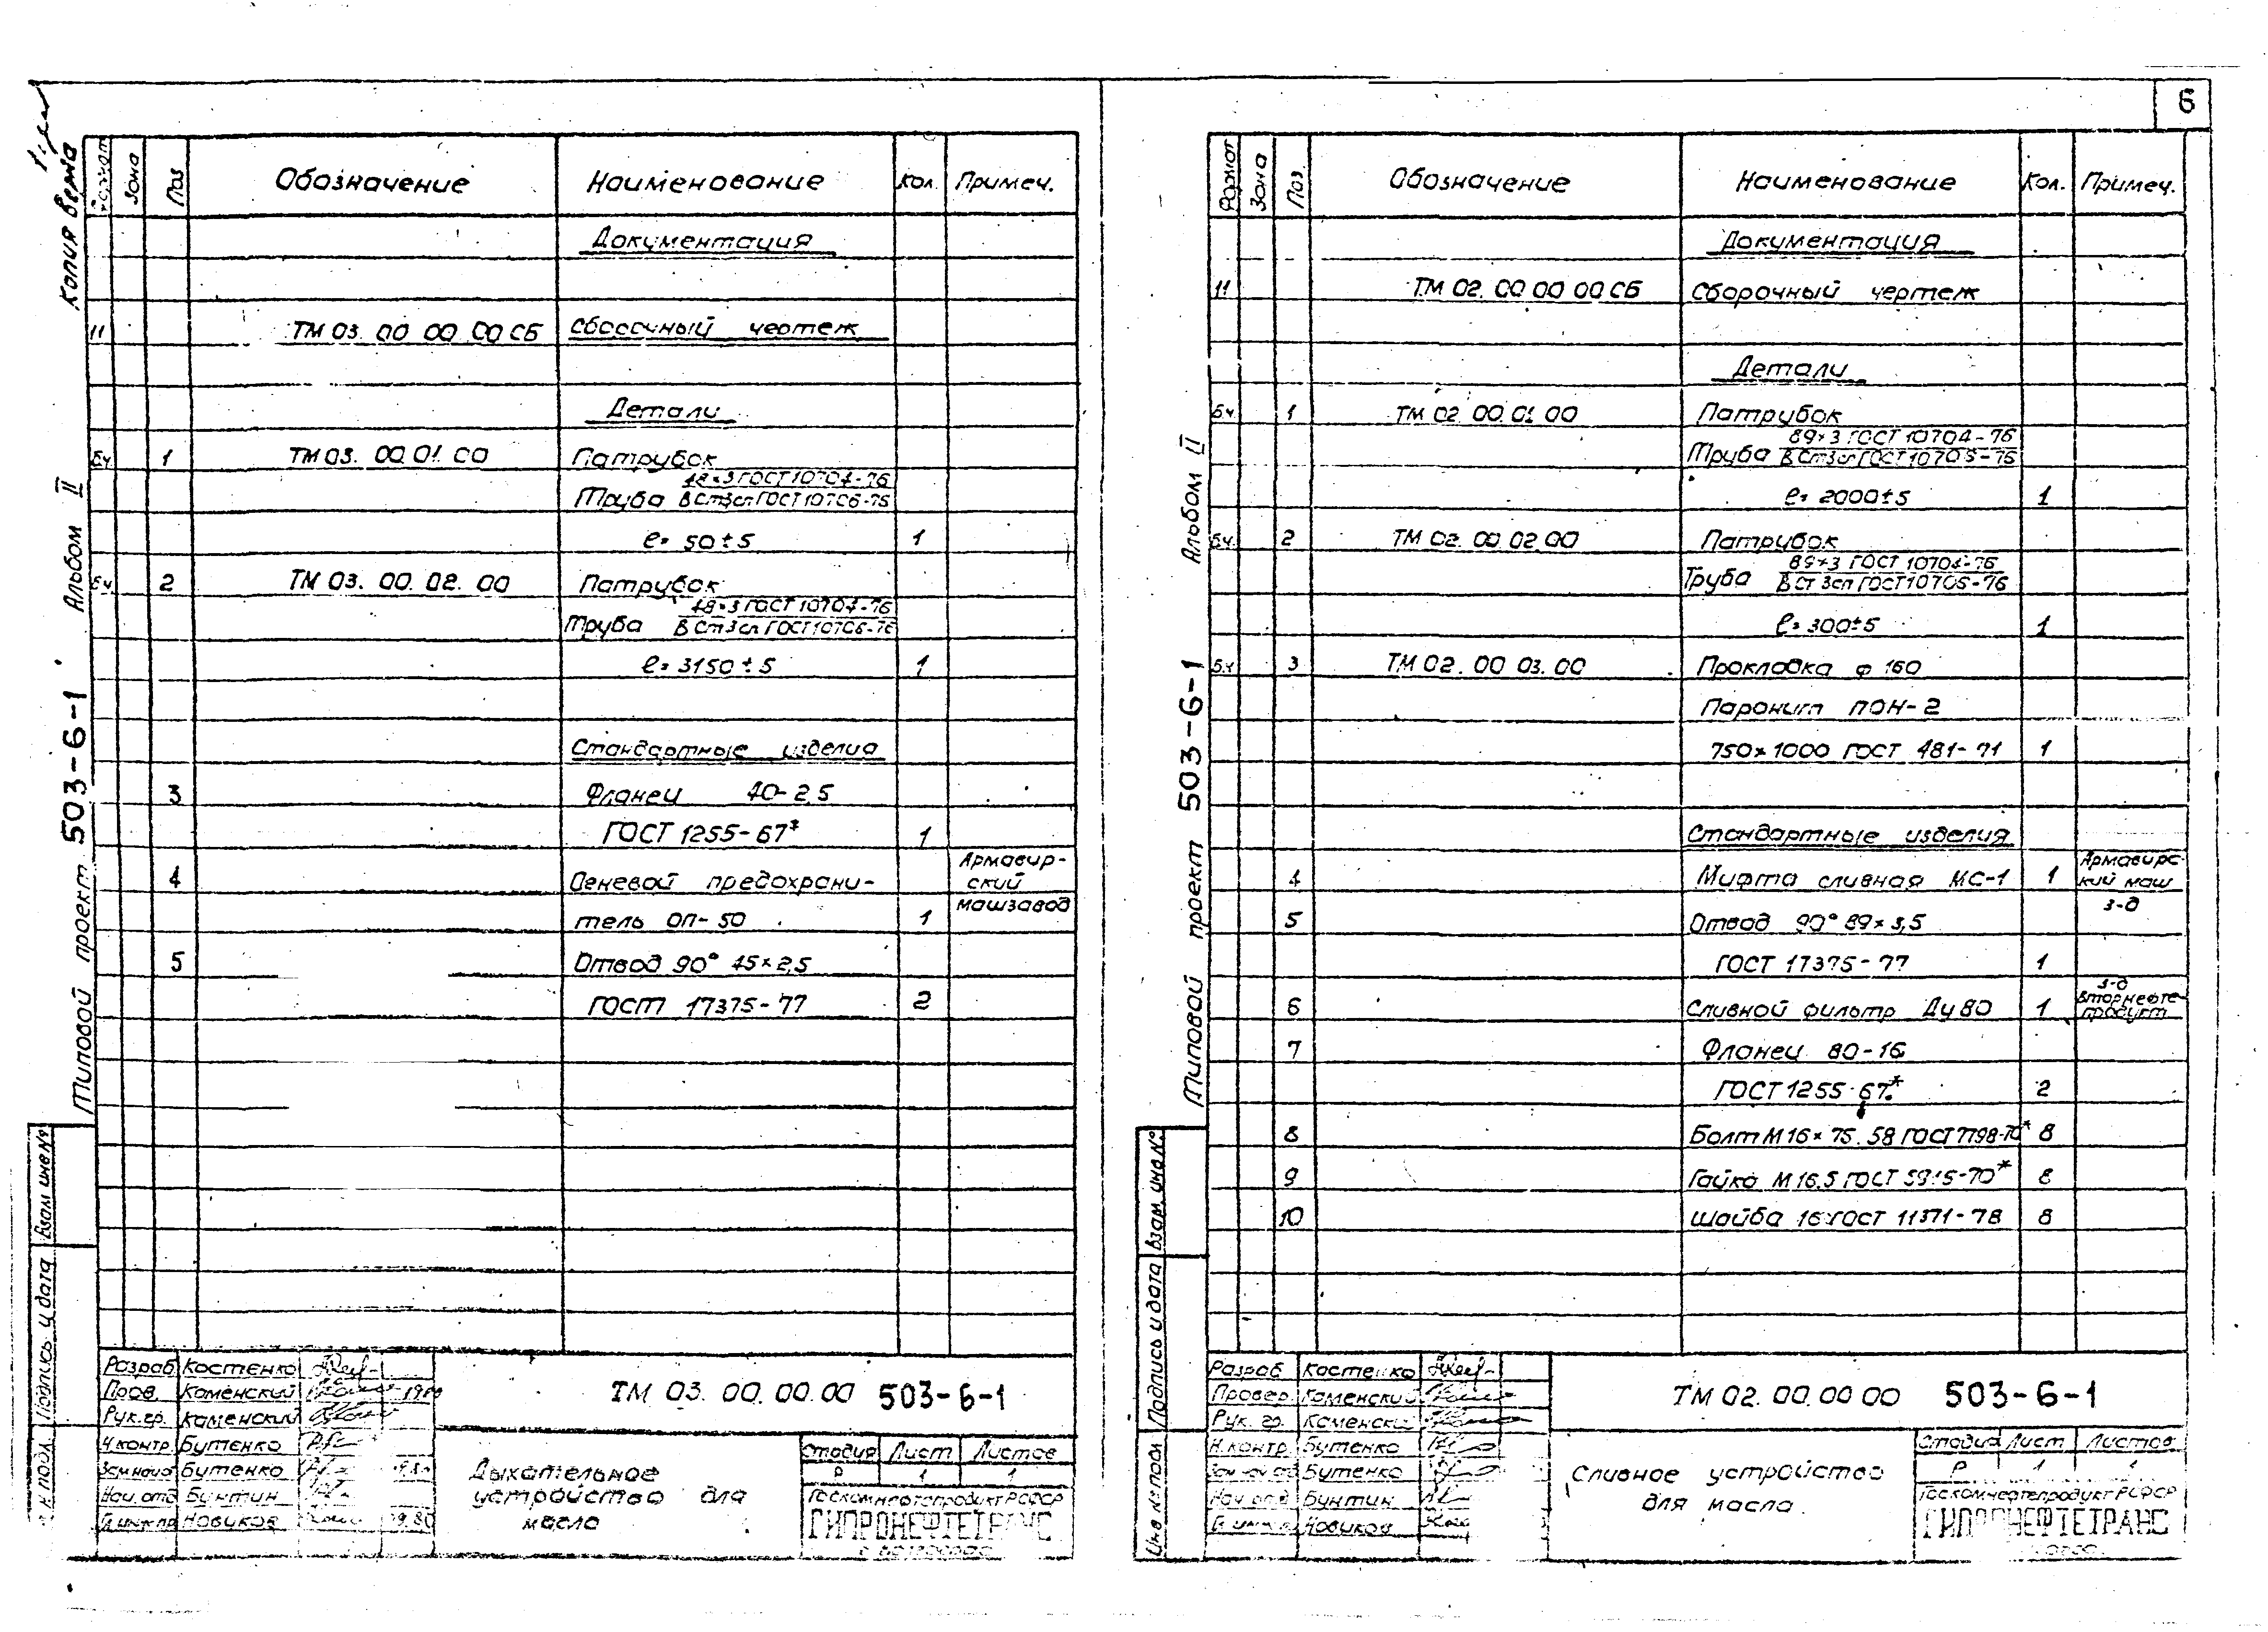 6
Копия верна
Типовой проект 503-6-1 Альбом II
Формат Зона Поз Обозначение Наименование Кол. Примеч.
Документация
11 ТМ 03. 00 00 00 СБ Сборочный чертеж
Детали
Бч 1 ТМ 03. 00 01. 00 Патрубок
48×3 ГОСТ 10704-76
Труба ВСт3сп ГОСТ 10705-76
ℓ= 50±5 1
Бч 2 ТМ 03. 00. 02. 00 Патрубок
48×3 ГОСТ 10704-76
Труба ВСт3сп ГОСТ 10705-76
ℓ= 3150±5 1
Стандартные изделия
3 Фланец 40-2,5
ГОСТ 1255-67* 1
4 Огневой предохрани- Армавир-
ский
тель ОП-50 1 машзавод
5 Отвод 90° 45×2,5
ГОСТ 17375-77 2
Взам инв№
Подпись и дата
Разраб Костенко
Пров. Каменский
Рук.гр. Каменский
Н.контр. Бутенко
Зам нач о Бутенко
Нач. отд Бунтин
Гл инж пр Новиков
ТМ 03. 00. 00. 00 503-6-1
Дыхательное
устройство для
масла
Стадия Лист Листов
Р 1 1
Госкомнефтепродукт РСФСР
ГИПРОНЕФТЕТРАНС
Типовой проект 503-6-1 Альбом II
Формат Зона Поз. Обозначение Наименование Кол. Примеч.
Документация
11 ТМ 02. 00 00 00 СБ Сборочный чертеж
Детали
Бч 1 ТМ 02. 00. 01 00 Патрубок
89×3 ГОСТ 10704-76
Труба ВСт3сп ГОСТ 10705-76
ℓ= 2000±5 1
Бч. 2 ТМ 02. 00. 02 00 Патрубок
89×3 ГОСТ 10704-76
Труба ВСт 3сп ГОСТ 10705-76
ℓ= 300±5 1
Бч 3 ТМ 02. 00 03. 00 Прокладка ф 160
Паронит ПОН-2
750×1000 ГОСТ 481-71 1
Стандартные изделия
4 Муфта сливная МС-1 1 Армавирс-
кий маш
з-д
5 Отвод 90° 89×3,5
ГОСТ 17375-77 1
6 Сливной фильтр Ду 80 1 з-д
Вторнефте-
продукт
7 Фланец 80-16
ГОСТ 1255-67* 2
8 Болт М 16×75. 58 ГОСТ 7798-70* 8
9 Гайка М 16.5 ГОСТ 5915-70* 8
10 Шайба 16 ГОСТ 11371-78 8
Взам. инв.№
Подпись и дата
Инв № подл
Разраб Костенко
Провер Каменский
Рук. гр. Каменский
Н. контр. Бутенко
Зам нач отд Бутенко
Нач отд Бунтин
Гл инж п Новиков
ТМ 02. 00. 00 00 503-6-1
Сливное устройство
для масла
Стадия Лист Листов
Р 1 1
Госкомнефтепродукт РСФСР
ГИПРОНЕФТЕТРАНС